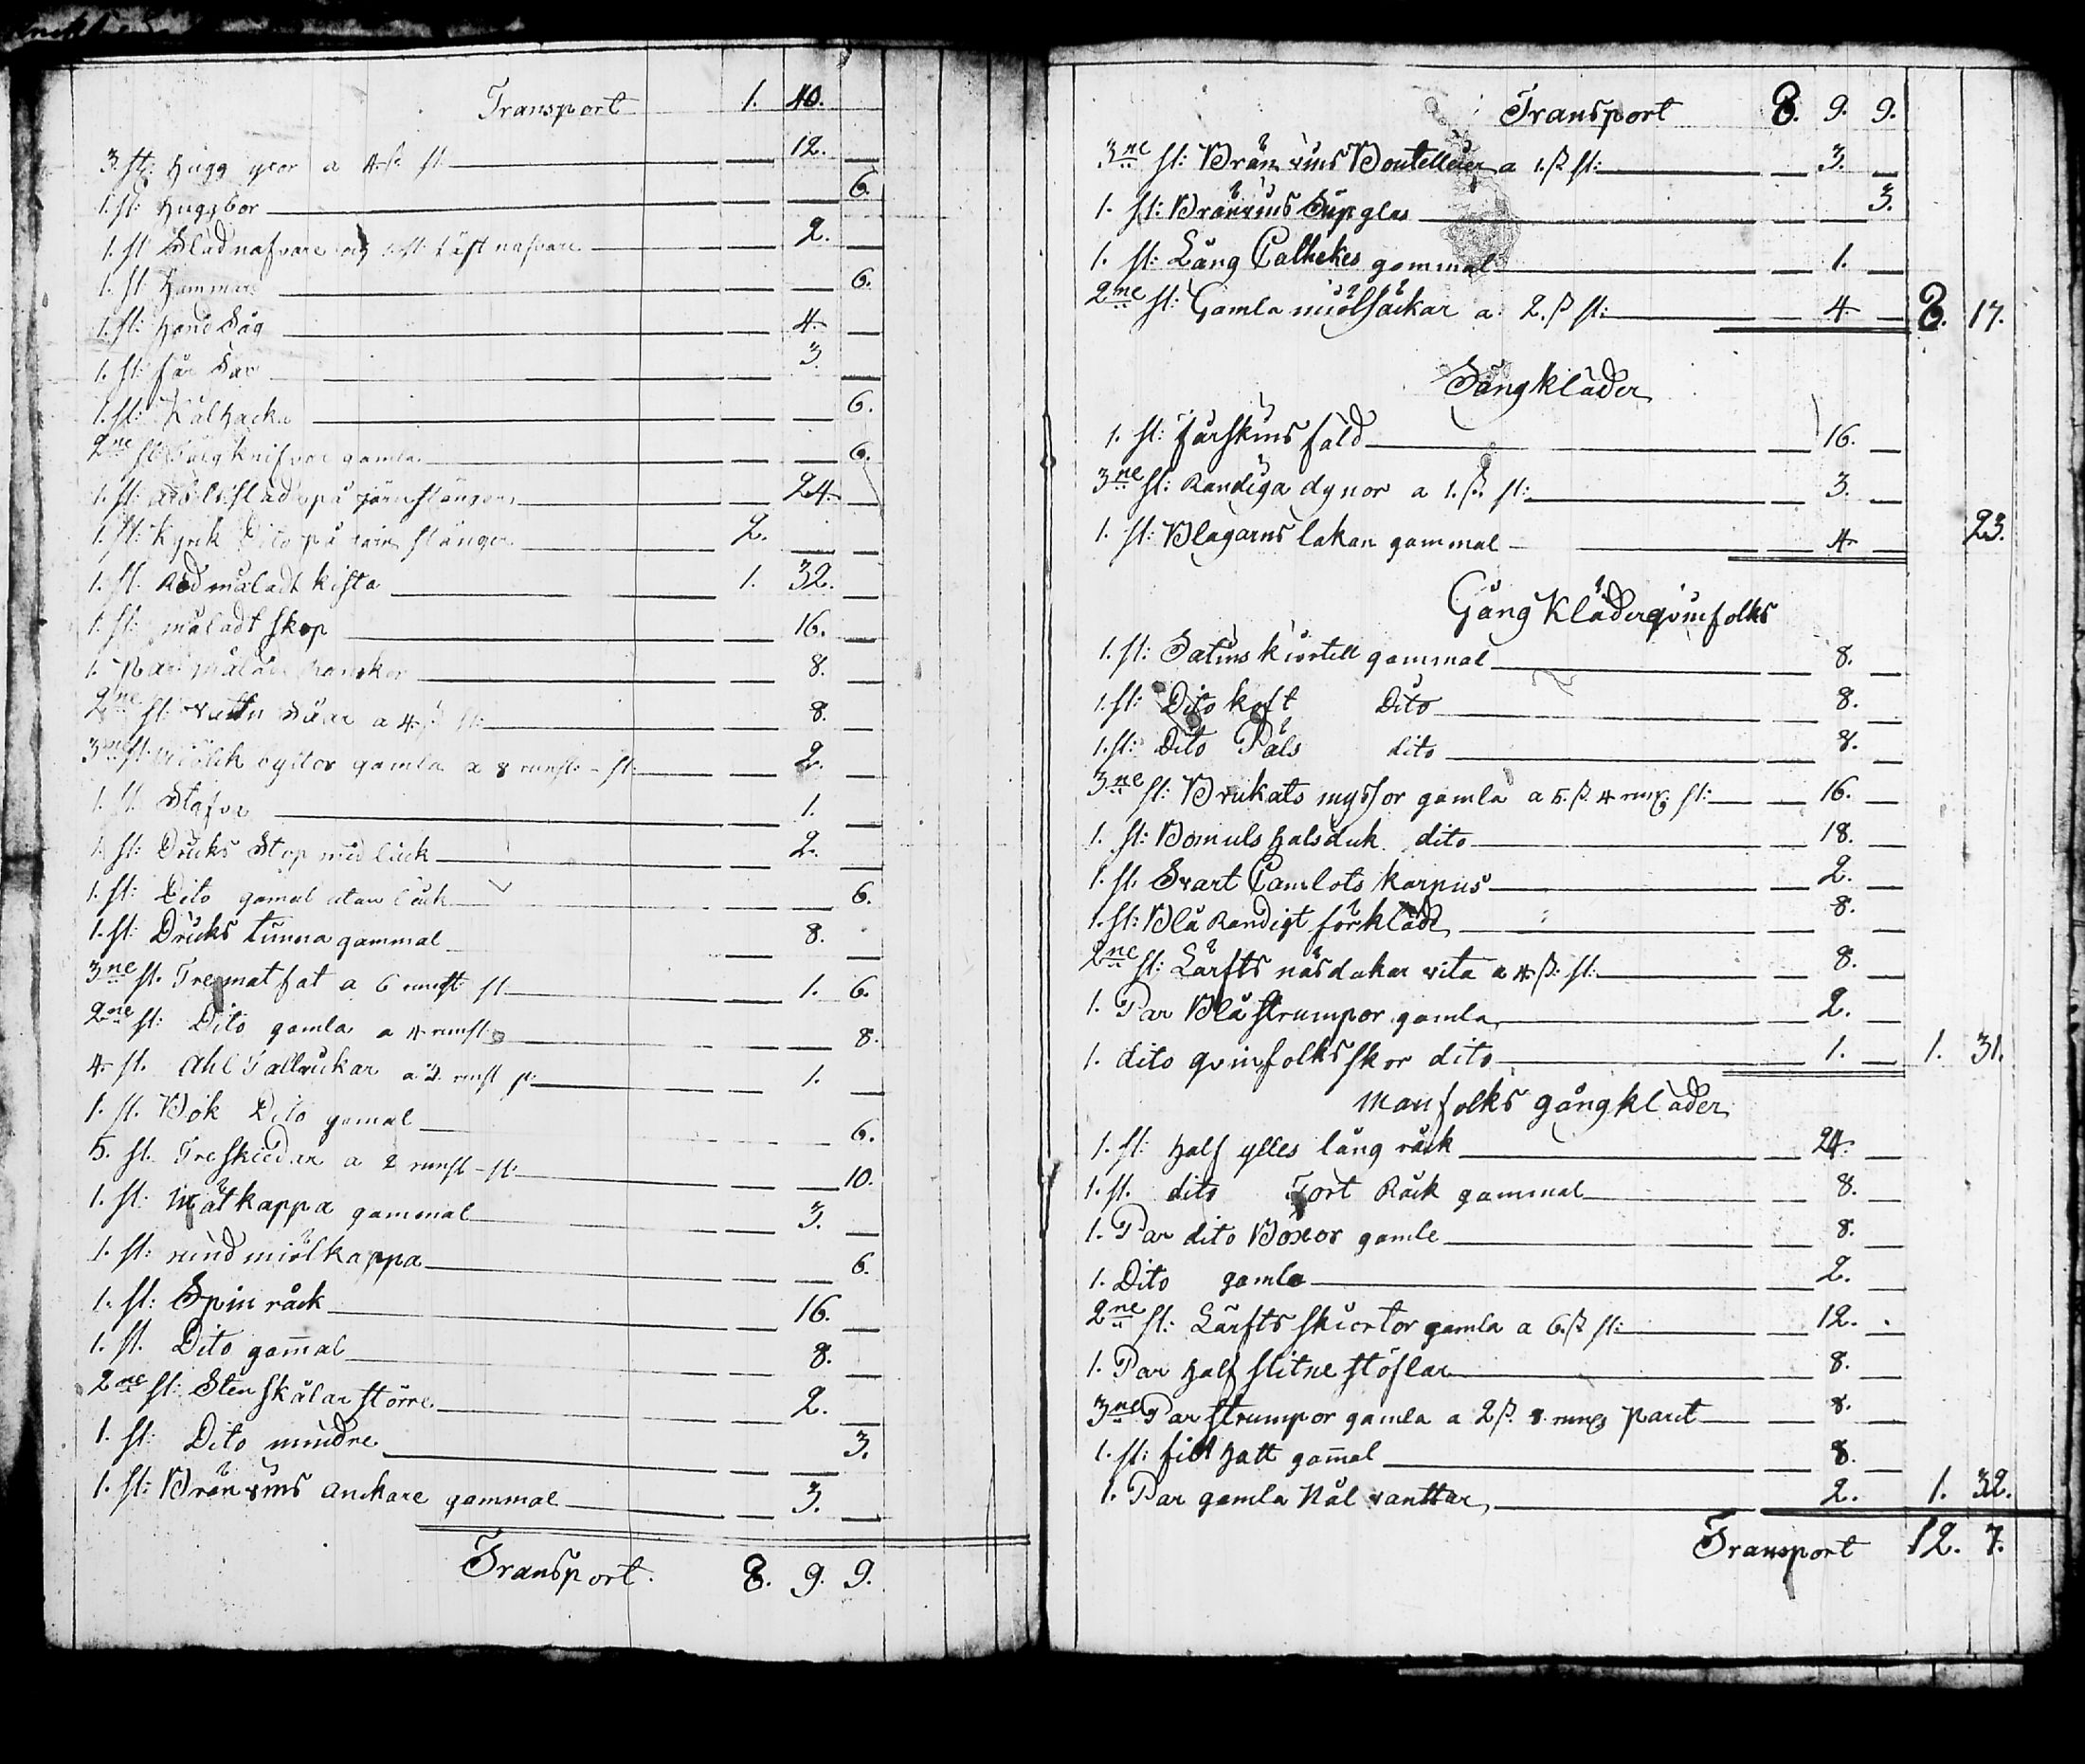 Transport 1. 40.
3. st: Hugg yxor a 4. ß st 12.
1. st: Huggbor 6.
1. st Sladnafvare och 1. st: Läst nafvare 2.
1. st Hammare 6.
1. st: Hand Såg 4.
1. st: får Sax 3.
1. st: Kålhacka 6.
2ne st Tälgknifvar gamla 6.
1. st: arbets släde på järnstänger 24.
1. st: Kyrk Dito på stänger 2.
1. st. Röd måladt kista 1. 32.
1. st: måladt skop 16.
1. Par målade 8.
2ne st: vattu Såar a 4. ß st: 8.
3ne st. Miölk byttor gamla a 8 runst. st: 2.
1. st Stäfva 1.
1. st: Dricks Stop med lock 2.
1. st: Dito gamal utan lock 6.
1. st: Dricks tunna gammal 8.
3ne st. Trematfat a 6 runst st 1. 6.
2ne st: Dito gamla a 4 runst: 8.
4 st. Ahl Tallrickar a 3 runst st: 1.
1. st. Bok Dito gamal 6.
5. st. Treskiedar a 2 runst - st: 10.
1. st: Matkappa gammal 3.
1. st: rund miölkappa 6.
1. st: Spin råck 16.
1. st. Dito gam̄al 8.
2ne st: Sten skålar större 2.
1. st: Dito mindre 3.
1. st: Brän vins anckare gammal 3.
Transport. 8. 9. 9.
Transport 8. 9. 9.
3ne st: Brän vins Boutellier a 1. ß st: 3.
1. st: Bränvins Supglas 3.
1. st: Lång Cathekes gammal 1.
2ne st: Gamla miölsäckar a 2. ß st: 4 8. 17.
Sängkläder
1. st: fårskins fäld 16.
3ne st: Randiga dynor a 1. ß. st: 3.
1. st: Blagarns lakan gammal 4 23.
Gång Kläder qvinfolks
1. st: Satins kiortell gammal 8.
1. st: Dito koft Dito 8.
1. st: Dito Päls dito 8.
3ne st: Brukats myssor gamla a 5. ß. 4 runs. st: 16.
1. st: Bomuls Halsduk dito 18.
1. st. Svart Camlots Karpus 2.
1. st: Blå Randigt förkläde 8.
2ne st: Lärfts näsdukar vita a 4. ß: st: 8.
1. Par Blå strumpor gamla 2.
1. dito qvinfolks skor dito 1. 1. 31.
Manfolks gångkläder
1. st: Half ylles lång råck 24.
1. st. dito Tort Råck gammal 8.
1. Par dito Böxor gamle 8.
1. Dito gamla 2.
2ne st: Lärfts skiortor gamla a 6. ß st: 12.
1. Par Half slitne stöflar 8.
3ne Par strumpor gamla a 2 ß. 8 runs paret 8.
1. st: filt Hatt gam̄al 8.
1. Par gamla Nål vanttar 2. 1. 32.
Transport 12. 7.